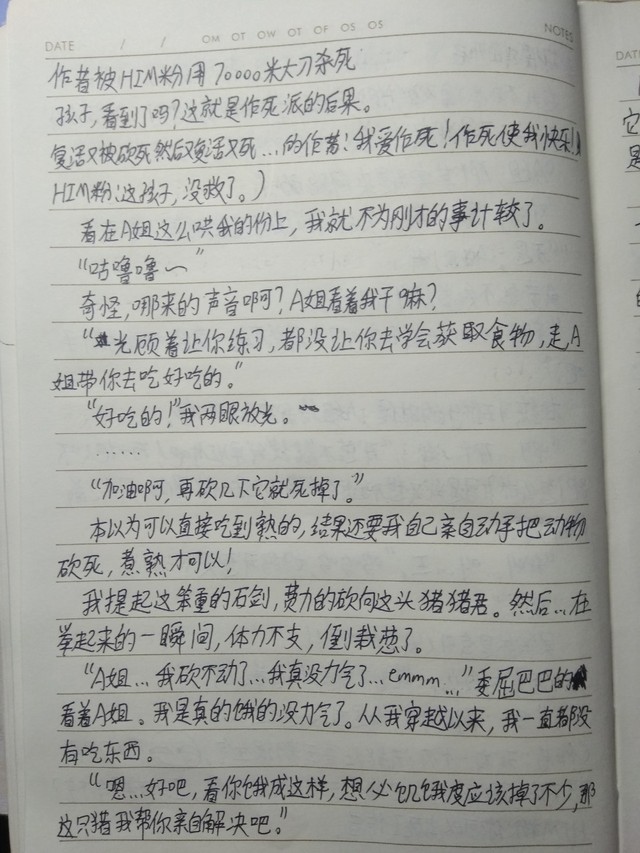 DATE / / OM OT OW OT OF OS OS NOTES
作者被HIM粉用70000米大刀杀死
孩子,看到了吗?这就是作死派的后果。
复活又被砍死然后又复活又死...的作者:我爱作死!作死使我快乐!
HIM粉:这孩子,没救了。)
看在A姐这么哄我的份上,我就不为刚才的事计较了。
“咕噜噜~”
奇怪,哪来的声音啊?A姐看着我干嘛?
“光顾着让你练习,都没让你去学会获取食物,走A
姐带你去吃好吃的。”
“好吃的!”我两眼放光。
......
“加油啊,再砍几下它就死掉了。”
本以为可以直接吃到熟的,结果还要我自己亲自动手把动物
砍死,煮熟才可以!
我提起这笨重的石剑,费力的砍向这头猪猪君。然后...在
举起来的一瞬间,体力不支,倒栽葱了。
“A姐...我砍不动了...我真没力气了...emmm...”委屈巴巴的
看着A姐。我是真的饿的没力气了。从我穿越以来,我一直都没
有吃东西。
“嗯...好吧,看你饿成这样,想必饥饿度应该掉了不少,那
这只猪我帮你亲自解决吧。”
DAT
它
是
的